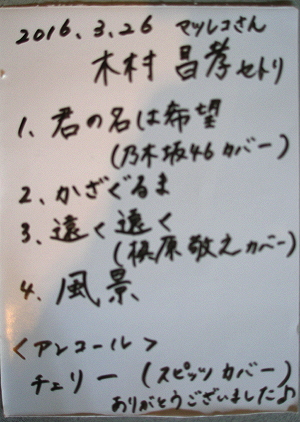 2016.3.26 マツレコさん
木村 昌孝セトリ
1、君の名は希望
(乃木坂46カバー)
2、かざぐるま
3、遠く遠く
(槇原敬之カバー)
4、風景
<アンコール>
チェリー (スピッツカバー)
ありがとうございました♪